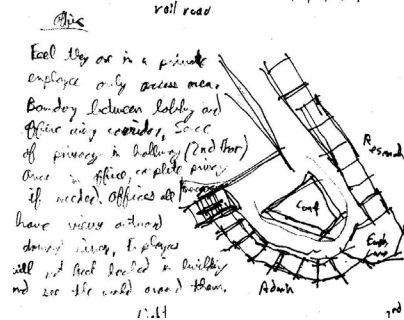 rail road
Office
Feel they are in a private
employee only access area.
Boundary between lobby and
office wing corridor, Sense
of privacy in hallway (2nd floor)
once in office, complete privacy
if needed. Offices all
have views outward
river, Employees
will not feel locked in building
and see the world around them.
Light
Conf
Admin
2nd